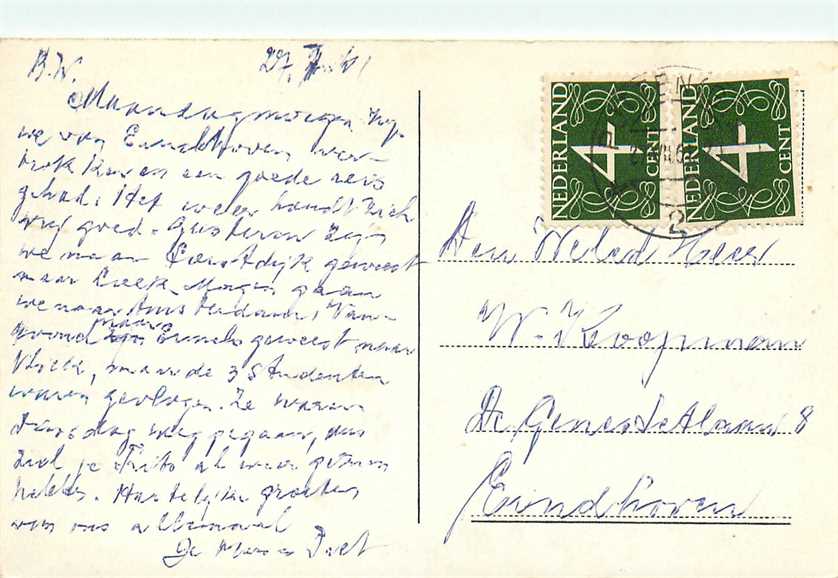 B.W. 27.7.61
Maandagmorgen zijn
we van Eindhoven ver-
trokken en een goede reis
gehad. Het weer houdt zich
nog goed. Gisteren zijn
we naar geweest
naar Morgen gaan
we naar Amsterdam. Van-
avond zijn naar geweest naar
maar de 3 studenten
waren gevlogen. Ze waren
Dinsdag weg gegaan, dus
zal je al weer gezien
hebben. Hartelijke groeten
van ons allemaal
Je
NEDERLAND
4
CENT
NEDERLAND
4
CENT
2
Den Weled. Heer
W. Koopman
De Genestetlaan 8
Eindhoven